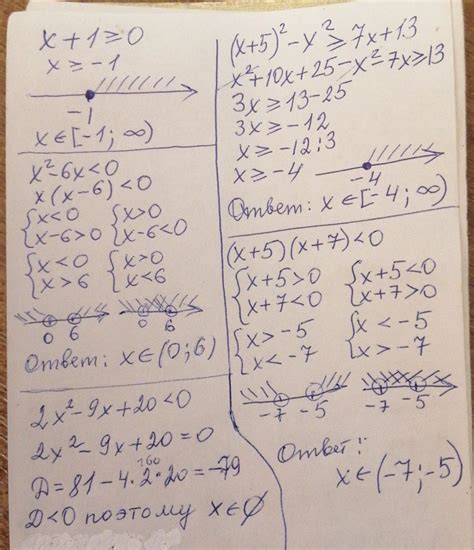 x+1≥0
x≥-1
-1
x∈[-1; ∞)
x²-6x<0
x(x-6)<0
{x<0 {x>0
{x-6>0 {x-6<0
{x<0 {x>0
{x>6 {x<6
0 6 0 6
Ответ: x∈(0;6)
2x²-9x+20<0
2x²-9x+20=0
160
D=81-4·2·20=-79
D<0 поэтому x∈∅
(x+5)²-x²≥7x+13
x²+10x+25-x²-7x≥13
3x≥13-25
3x≥-12
x≥-12:3
x≥-4
-4
Ответ: x∈[-4; ∞)
(x+5)(x+7)<0
{x+5>0 {x+5<0
{x+7<0 {x+7>0
{x>-5 {x<-5
{x<-7 {x>-7
-7 -5 -7 -5
Ответ:
x∈(-7;-5)